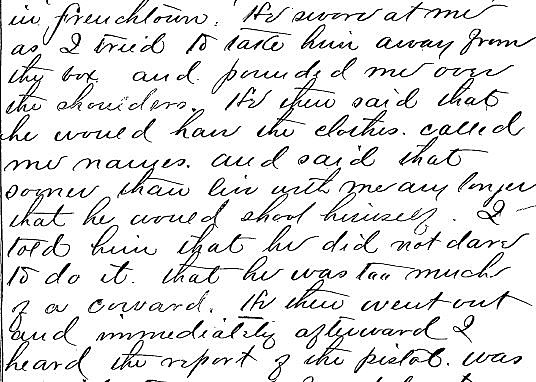 in Frenchtown. He swore at me
as I tried to take him away from
the box and pounded me over
the shoulders. He then said that
he would have the clothes. called
me names. and said that
sooner than live with me any longer
that he would shoot himself. I
told him that he did not dare
to do it. that he was too much
of a coward. He then went out
and immediately afterward I
heard the report of the pistol. was